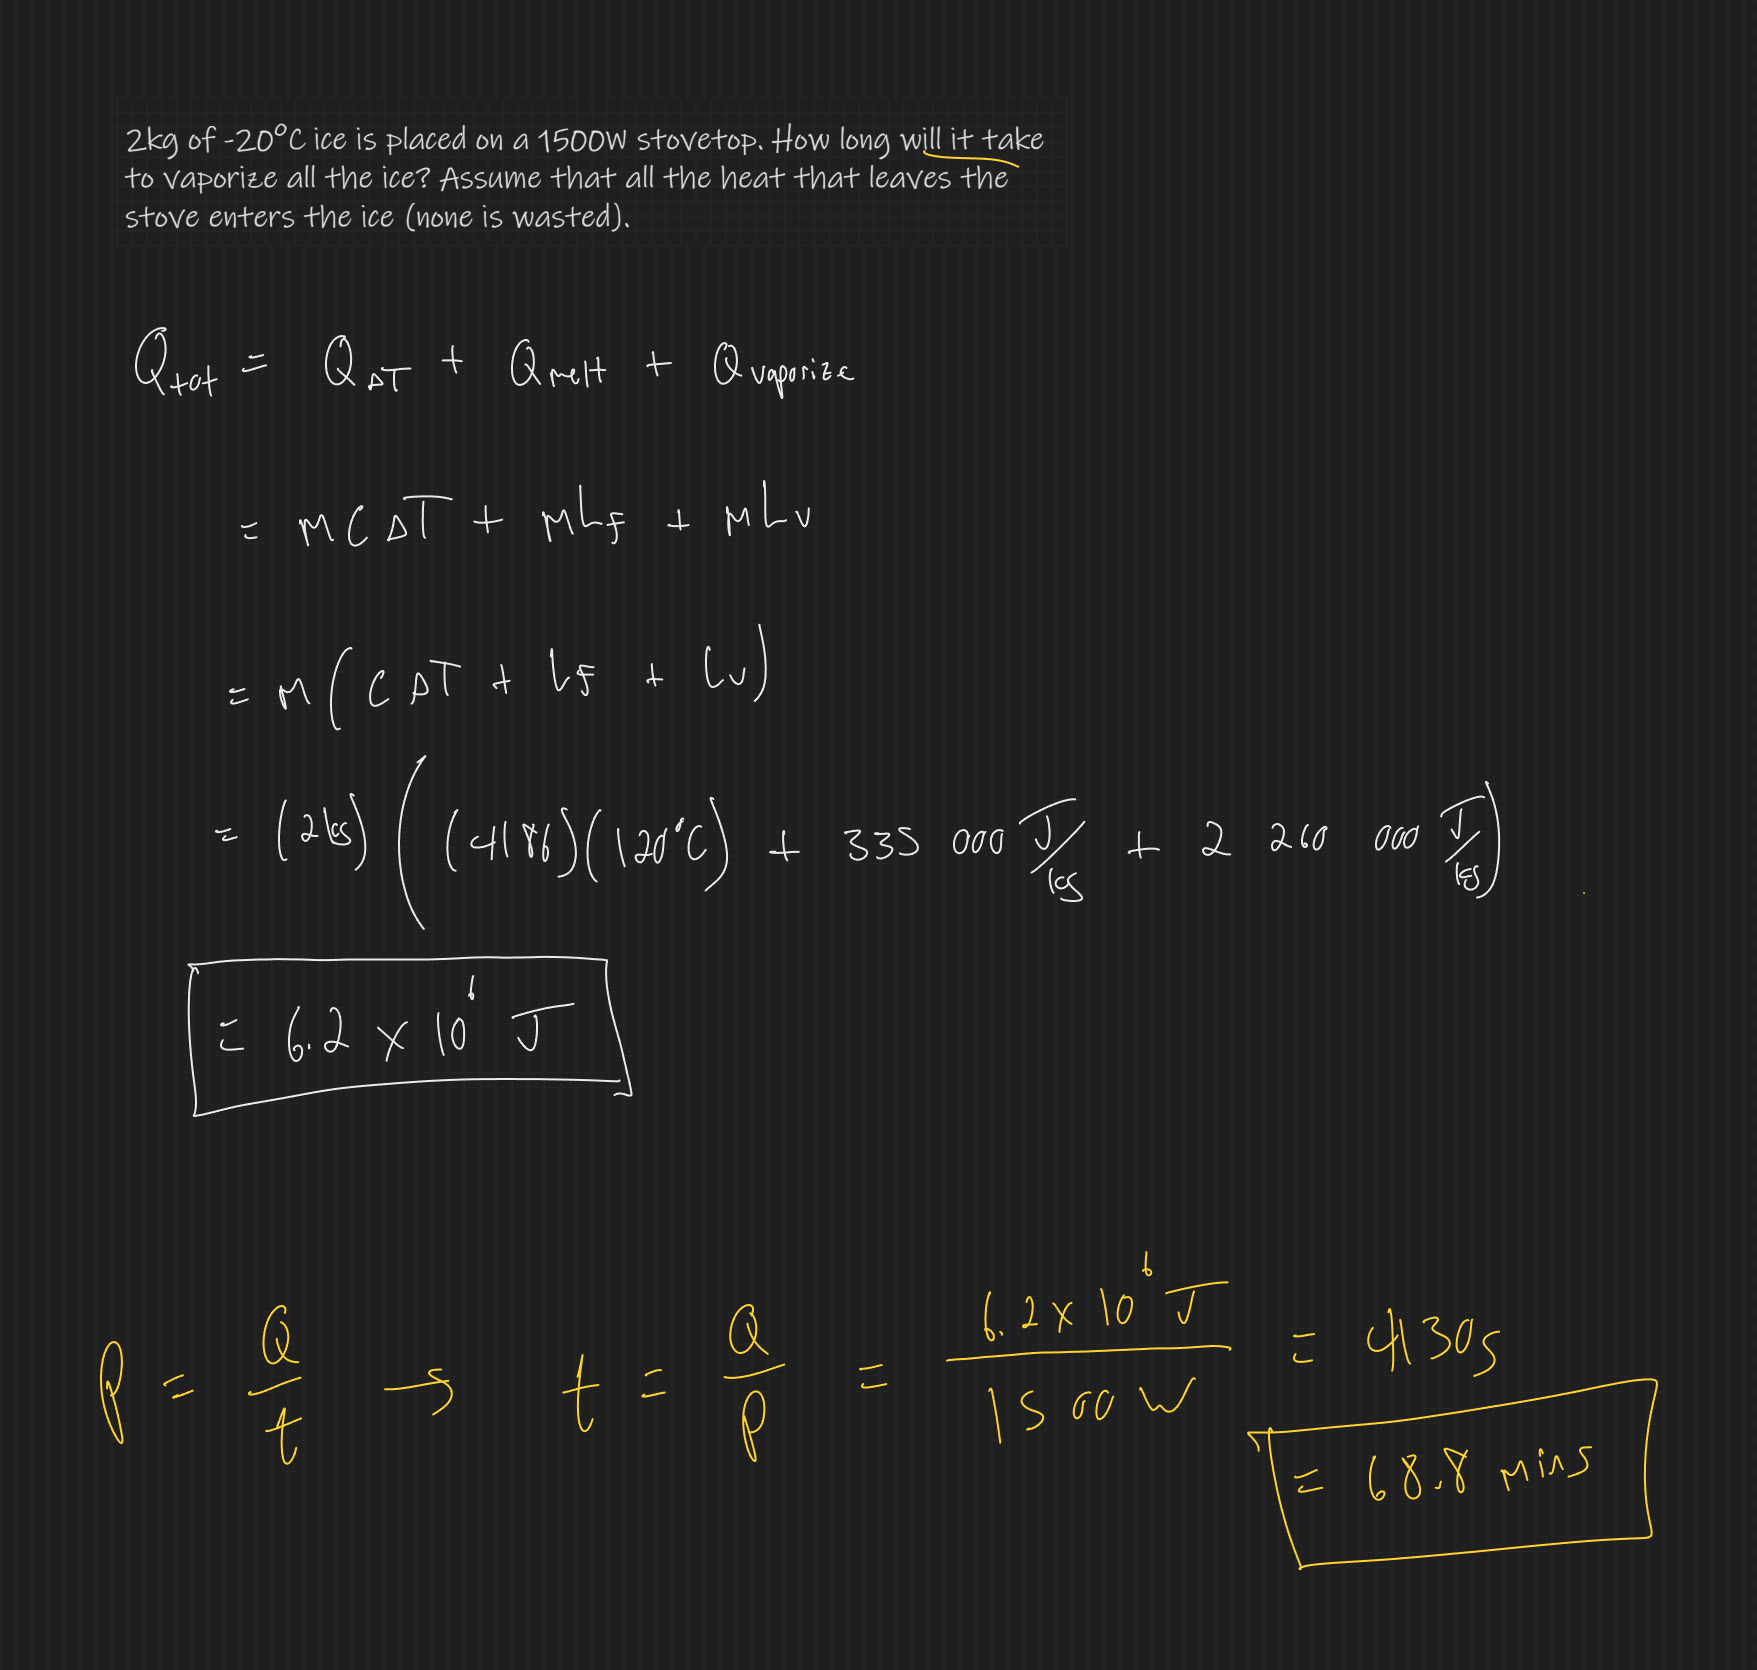 2kg of -20°C ice is placed on a 1500W stovetop. How long will it take
to vaporize all the ice? Assume that all the heat that leaves the
stove enters the ice (none is wasted).
Qtot = QΔT + Qmelt + Qvaporize
= mCΔT + mLf + mLv
= m(CΔT + Lf + Lv)
= (2kg)((4186)(120°C) + 335 000 J/kg + 2 260 000 J/kg)
= 6.2 x 10⁶ J
P = Q/t → t = Q/P = 6.2 x 10⁶ J / 1500 W = 4130s
= 68.8 mins